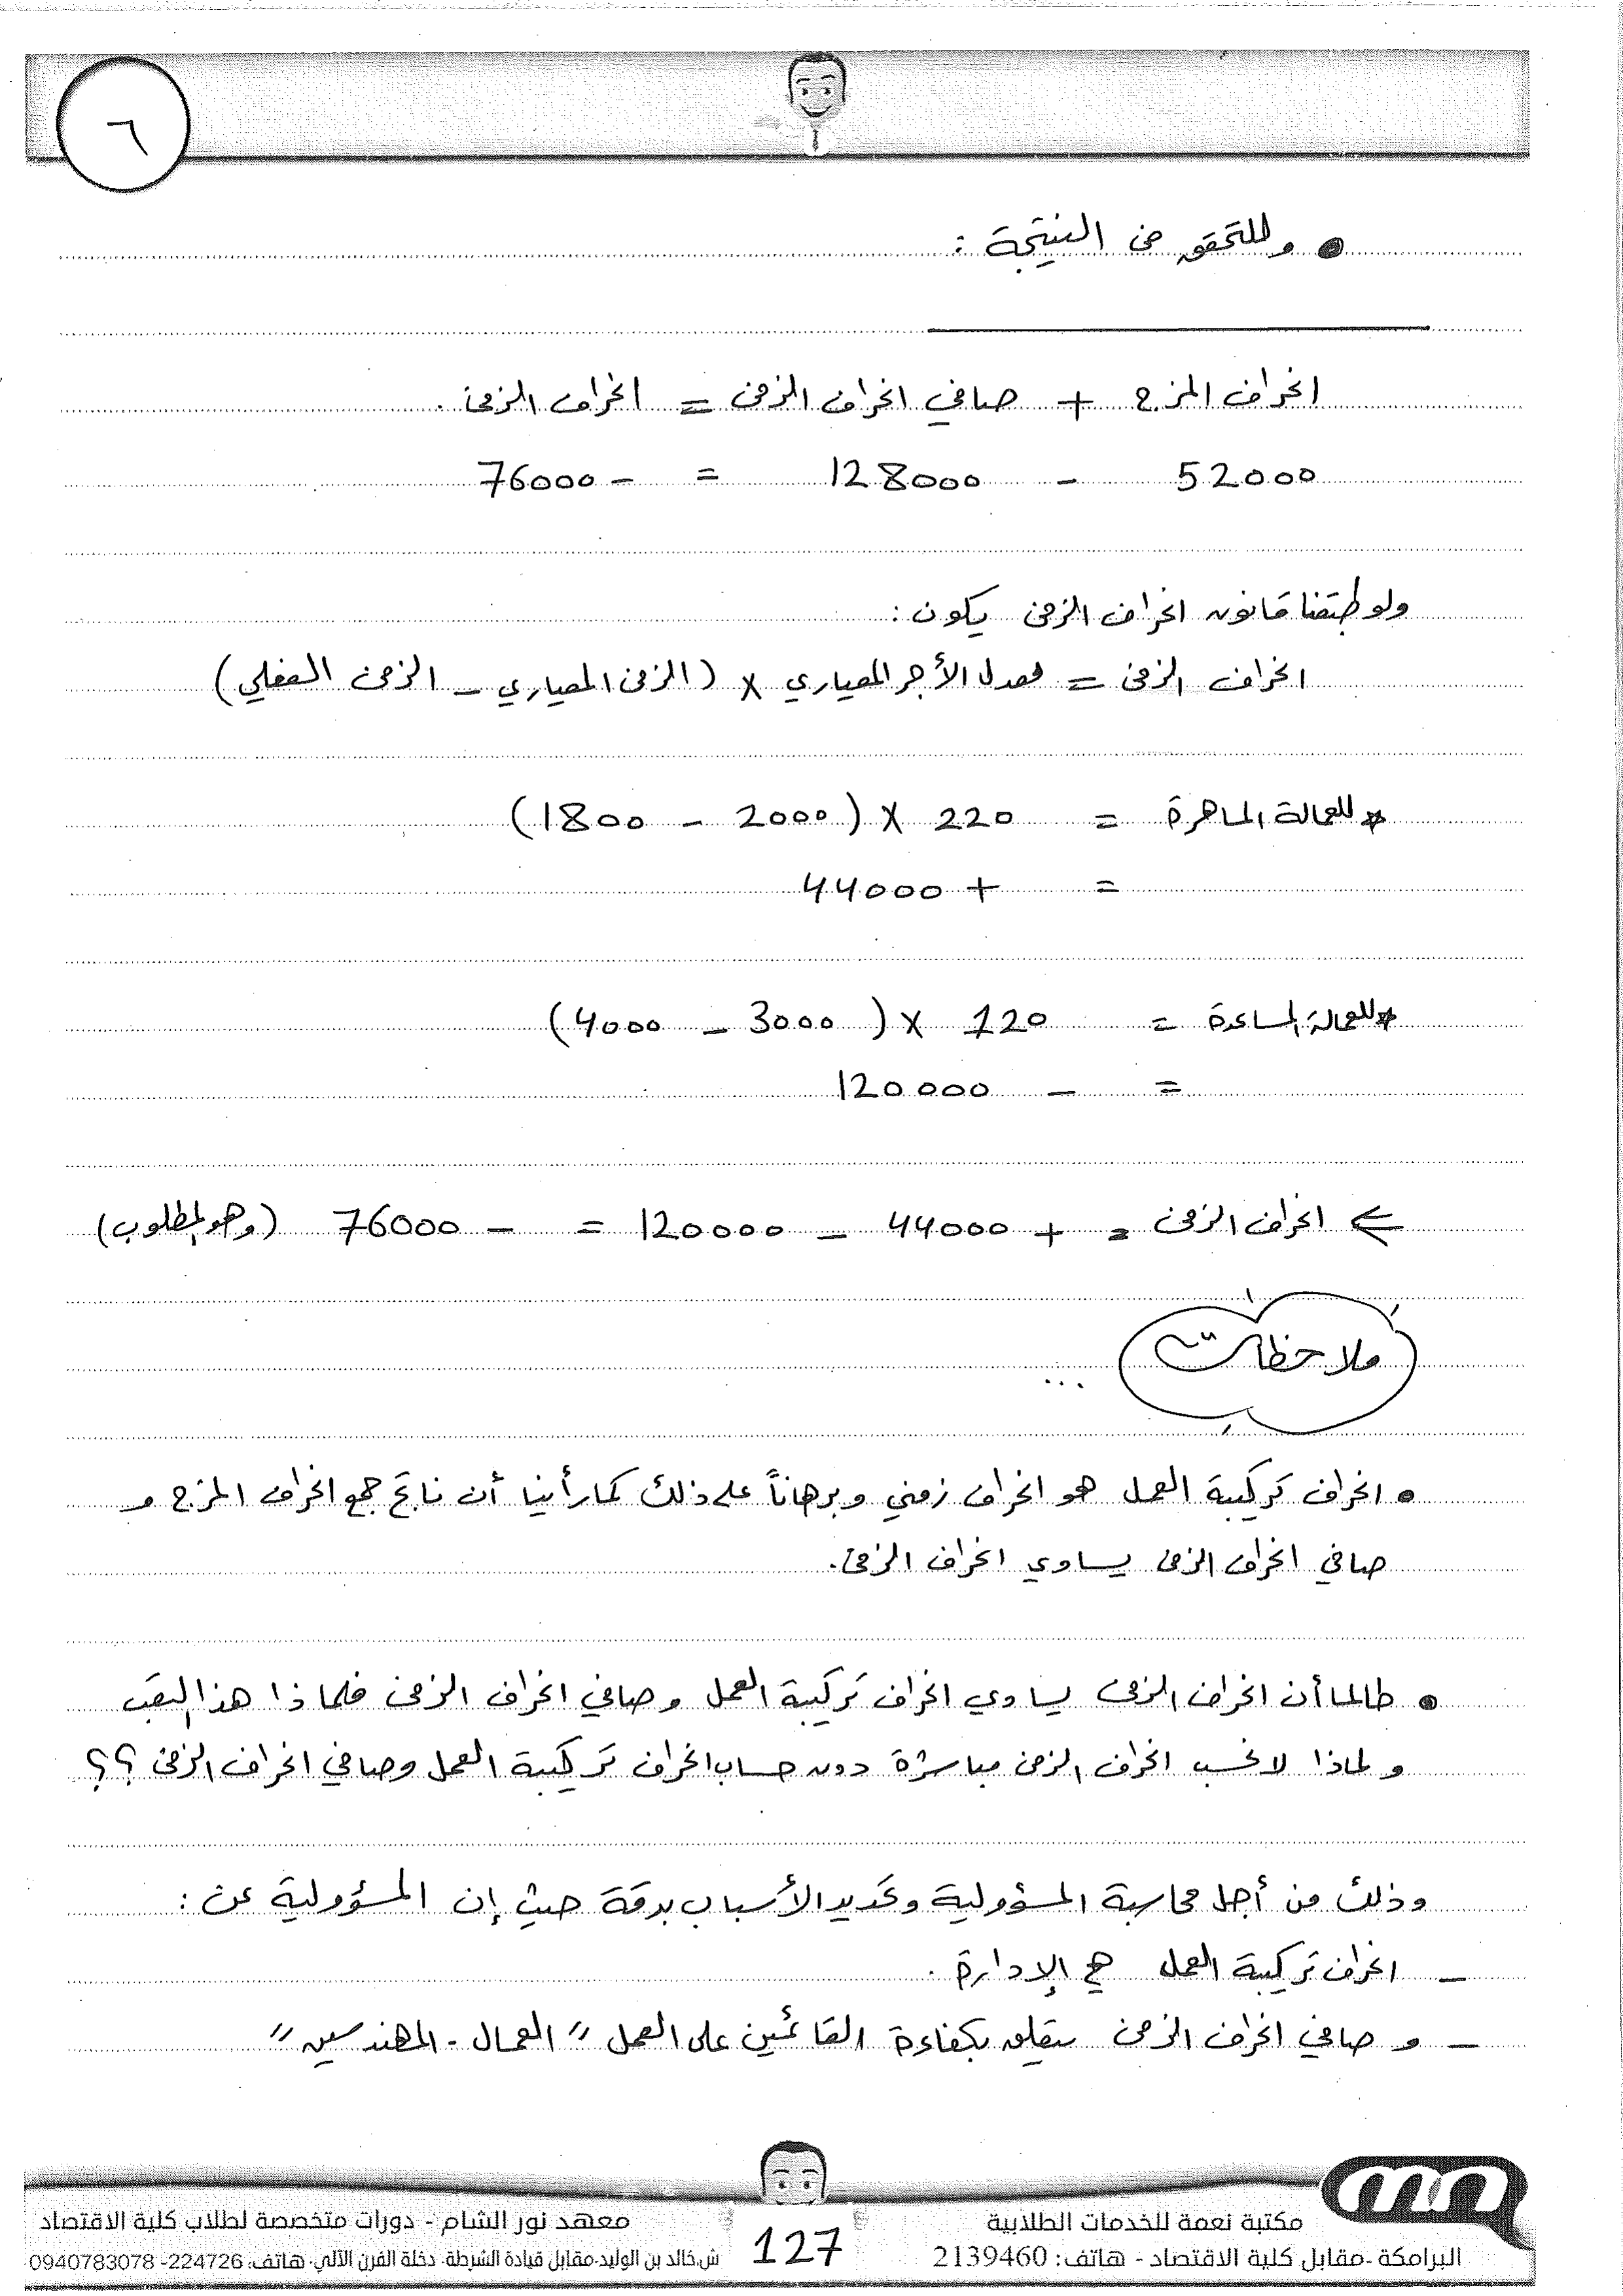 ٦
● وللتحقق من النتيجة :
انحراف المزج + صافي انحراف الزمن = انحراف الزمن .
52000 - 128000 = - 76000
ولو طبقنا قانون انحراف الزمن يكون :
انحراف الزمن = معدل الأجر المعياري × (الزمن المعياري - الزمن الفعلي)
* للعمالة الماهرة = 220 × (2000 - 1800)
= + 44000
* للعمالة المساعدة = 120 × (3000 - 4000)
= - 120000
⇐ انحراف الزمن = + 44000 - 120000 = - 76000 (وهو المطلوب)
ملاحظات ...
● انحراف تركيبة العمل هو انحراف زمني وبرهاناً على ذلك كما رأينا أن ناتج جمع انحراف المزج و
صافي انحراف الزمن يساوي انحراف الزمن.
● طالما أن انحراف الزمن يساوي انحراف تركيبة العمل وصافي انحراف الزمن فلماذا هذا التعب
ولماذا لا نحسب انحراف الزمن مباشرة دون حساب انحراف تركيبة العمل وصافي انحراف الزمن ؟؟
وذلك من أجل محاسبة المسؤولية وتحديد الأسباب بدقة حيث إن المسؤولية عن :
- انحراف تركيبة العمل هي الإدارة .
- وصافي انحراف الزمن يتعلق بكفاءة القائمين على العمل " العمال - المهندسين "
مكتبة نعمة للخدمات الطلابية
البرامكة -مقابل كلية الاقتصاد - هاتف: 2139460
127
معهد نور الشام - دورات متخصصة لطلاب كلية الاقتصاد
ش.خالد بن الوليد-مقابل قيادة الشرطة- دخلة الفرن الآلي- هاتف: 224726- 0940783078